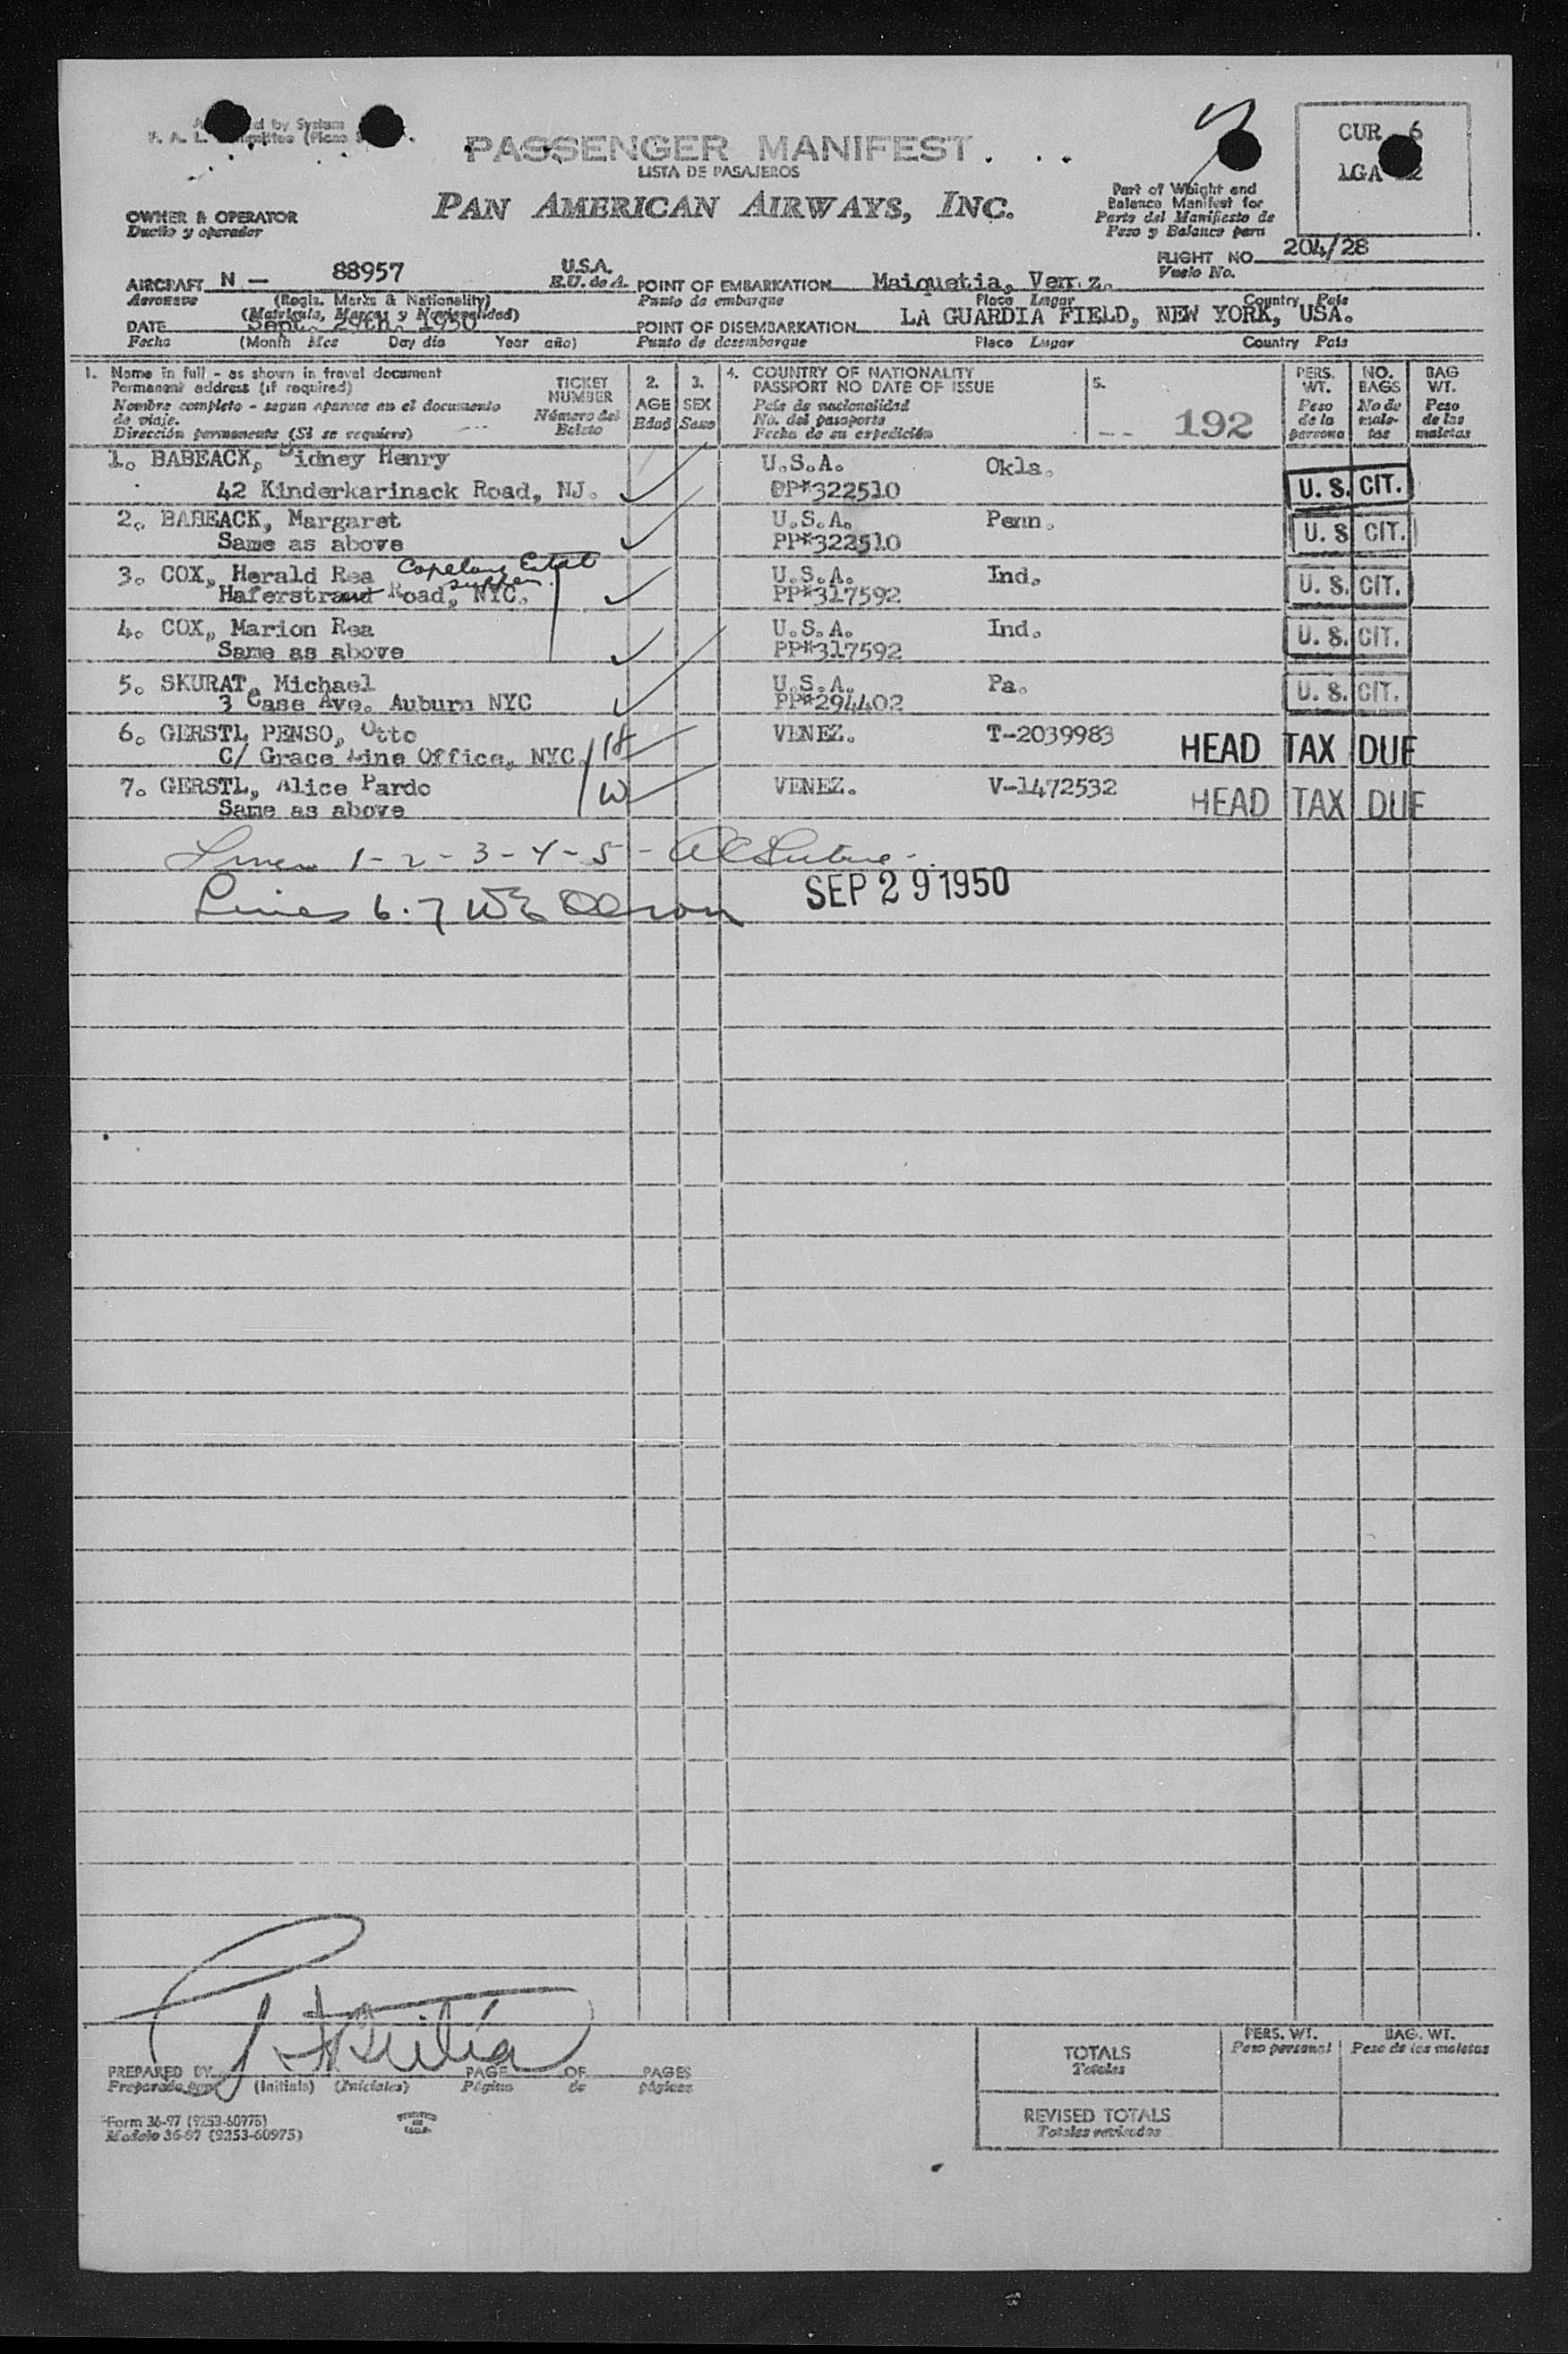 PASSENGER MANIFEST
LISTA DE PASAJEROS
PAN AMERICAN AIRWAYS, INC.
CUR 6
LGA
Part of Weight and
Balance Manifest for
Parte del Manifiesto de
Peso y Balance para
OWNER & OPERATOR
Dueño y operador
FLIGHT NO. 204/28
Vuelo No.
AIRCRAFT N — 88957 U.S.A. POINT OF EMBARKATION Maiquetia,
Aeronave (Regis. Marks & Nationality) E.U. de A. Punto de embarque Place Lugar Country Pais
(Matrícula, Marcas y Nacionalidad)
DATE Sept. 29th. 1950 POINT OF DISEMBARKATION LA GUARDIA FIELD, NEW YORK, USA.
Fecha (Month Mes Day dia Year año) Punto de desembarque Place Lugar Country Pais
1. Name in full - as shown in travel document
Permanent address (if required)
Nombre completo - segun aparece en el documento
de viaje.
Dirección permanente (Si se requiere)
TICKET
NUMBER
Número del
Boleto
2.
AGE
Edad
3.
SEX
Sexo
4. COUNTRY OF NATIONALITY
PASSPORT NO DATE OF ISSUE
País de nacionalidad
No. del pasaporte
Fecha de su expedición
5.
192
PERS.
WT.
Peso
de la
persona
NO.
BAGS
No de
male-
tas
BAG
WT.
Peso
de las
maletas
1. BABEACK, Sidney Henry U.S.A. Okla.
42 Kinderkarinack Road, NJ. PP*322510 U. S. CIT.
2. BABEACK, Margaret U.S.A. Penn.
Same as above PP*322510 U. S. CIT.
3. COX, Herald Rea U.S.A. Ind.
Haferstraut Road, NYC. PP*317592 U. S. CIT.
4. COX, Marion Rea U.S.A. Ind.
Same as above PP*317592 U. S. CIT.
5. SKURAT, Michael U.S.A. Pa.
3 Case Ave. Auburn NYC PP*294402 U. S. CIT.
6. GERSTL PENSO, Otto VENEZ. T-2039983 HEAD TAX DUE
C/ Grace Line Office, NYC
7. GERSTL, Alice Pardo W VENEZ. V-1472532 HEAD TAX DUE
Same as above
Lines 1-2-3-4-5-
Lines 6.7
SEP 29 1950
PREPARED BY PAGE OF PAGES
Preparado por (Initials) (Iniciales) Página de páginas
Form 36-97 (9253-60975)
Modelo 36-97 (9253-60975)
TOTALS
Totales
PERS. WT.
Peso personal
BAG. WT.
Peso de las maletas
REVISED TOTALS
Totales revisados